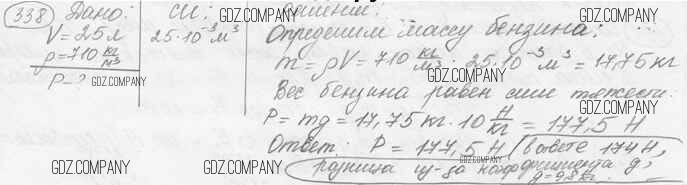 338 Дано: СИ: Решение: GDZ.COMPANY
GDZ.COMPANY GDZ.COMPANY
V = 25 л 25·10⁻³ м³ Определим массу бензина:
ρ = 710 кг/м³ m = ρV = 710 кг/м³ · 25·10⁻³ м³ = 17,75 кг
P = ? GDZ.COMPANY GDZ.COMPANY
Вес бензина равен силе тяжести:
P = mg = 17,75 кг · 10 Н/кг = 177,5 Н
GDZ.COMPANY GDZ.COMPANY
Ответ: P = 177,5 Н (в ответе 174 Н,
GDZ.COMPANY GDZ.COMPANY GDZ.COMPANY
разница из-за коэффициента g,
g = 9,8 кг.